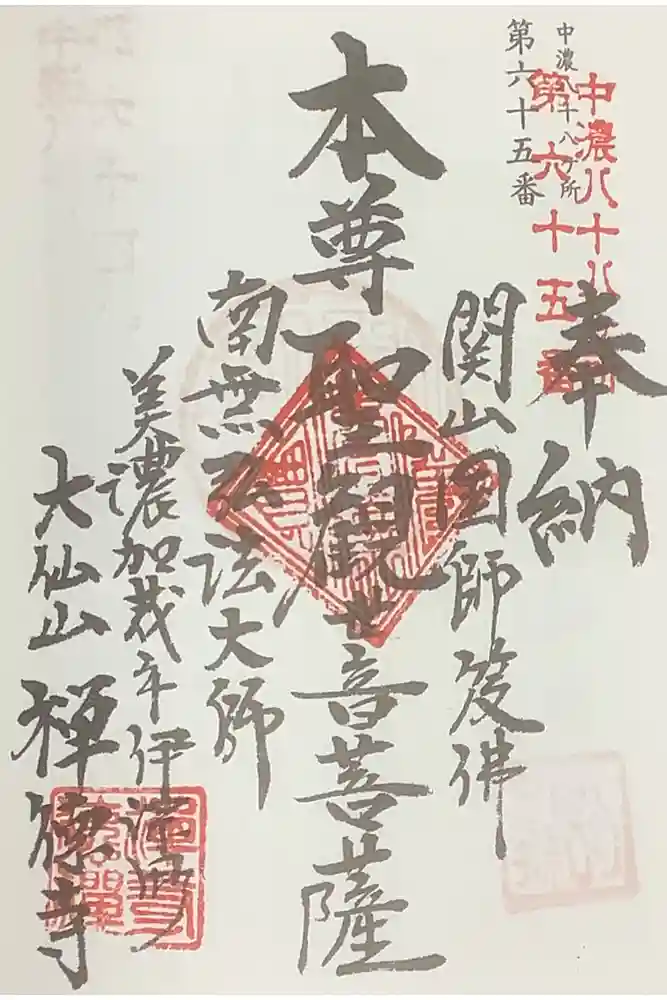 中濃八十八ヶ所
第六十五番
中濃八十八ヶ所
第六十五番
奉納
関山国師笈佛
本尊聖観世音菩薩
南無弘法大師
美濃加茂市伊深町
大仙山禅徳寺